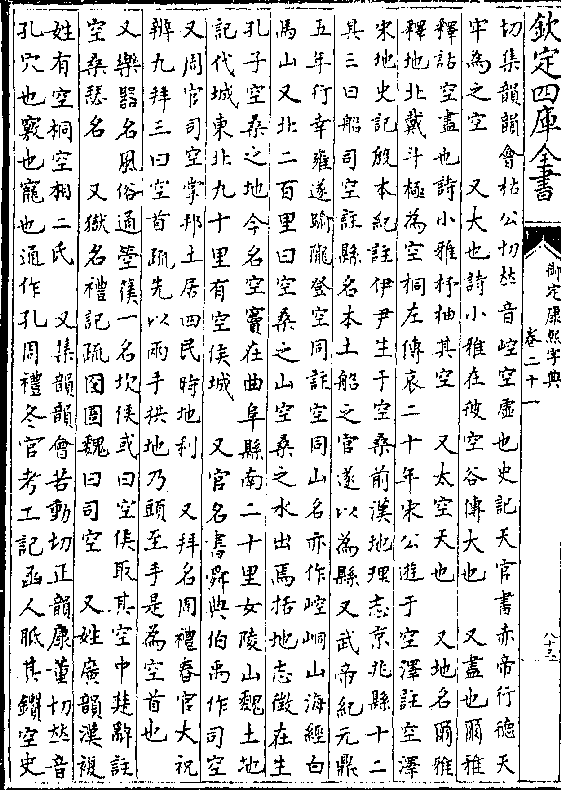 欽定四庫全書
御定康熙字典
卷二十一
切集韻韻會枯公切𠀤音崆空虛也史記天官書赤帝行德天
牢為之空 又大也詩小雅在彼空谷傳大也 又盡也爾雅
釋詁空盡也詩小雅杼柚其空 又太空天也 又地名爾雅
釋地北戴斗極為空桐左傳哀二十年宋公遊于空澤註空澤
宋地史記殷本紀註伊尹生于空桑前漢地理志京兆縣十二
其三曰船司空註縣名本主船之官遂以為縣又武帝紀元鼎
五年行幸雍遂踰隴登空同註空同山名亦作崆峒山海經白
馬山又北二百里曰空桑之山空桑之水出焉括地志徵在生
孔子空桑之地今名空竇在曲阜縣南二十里女陵山魏土地
記代城東北九十里有空侯城 又官名書舜典伯禹作司空
又周官司空掌邦土居四民時地利 又拜名周禮春官大祝
辨九拜三曰空首疏先以兩手拱地乃頭至手是為空首也
又樂器名風俗通箜篌一名坎侯或曰空侯取其空中楚辭註
空桑瑟名 又獄名禮記疏囹圄魏曰司空 又姓廣韻漢複
姓有空桐空相二氏 又集韻韻會苦動切正韻康董切𠀤音
孔穴也竅也窾也通作孔周禮冬官考工記函人眡其鑽空史